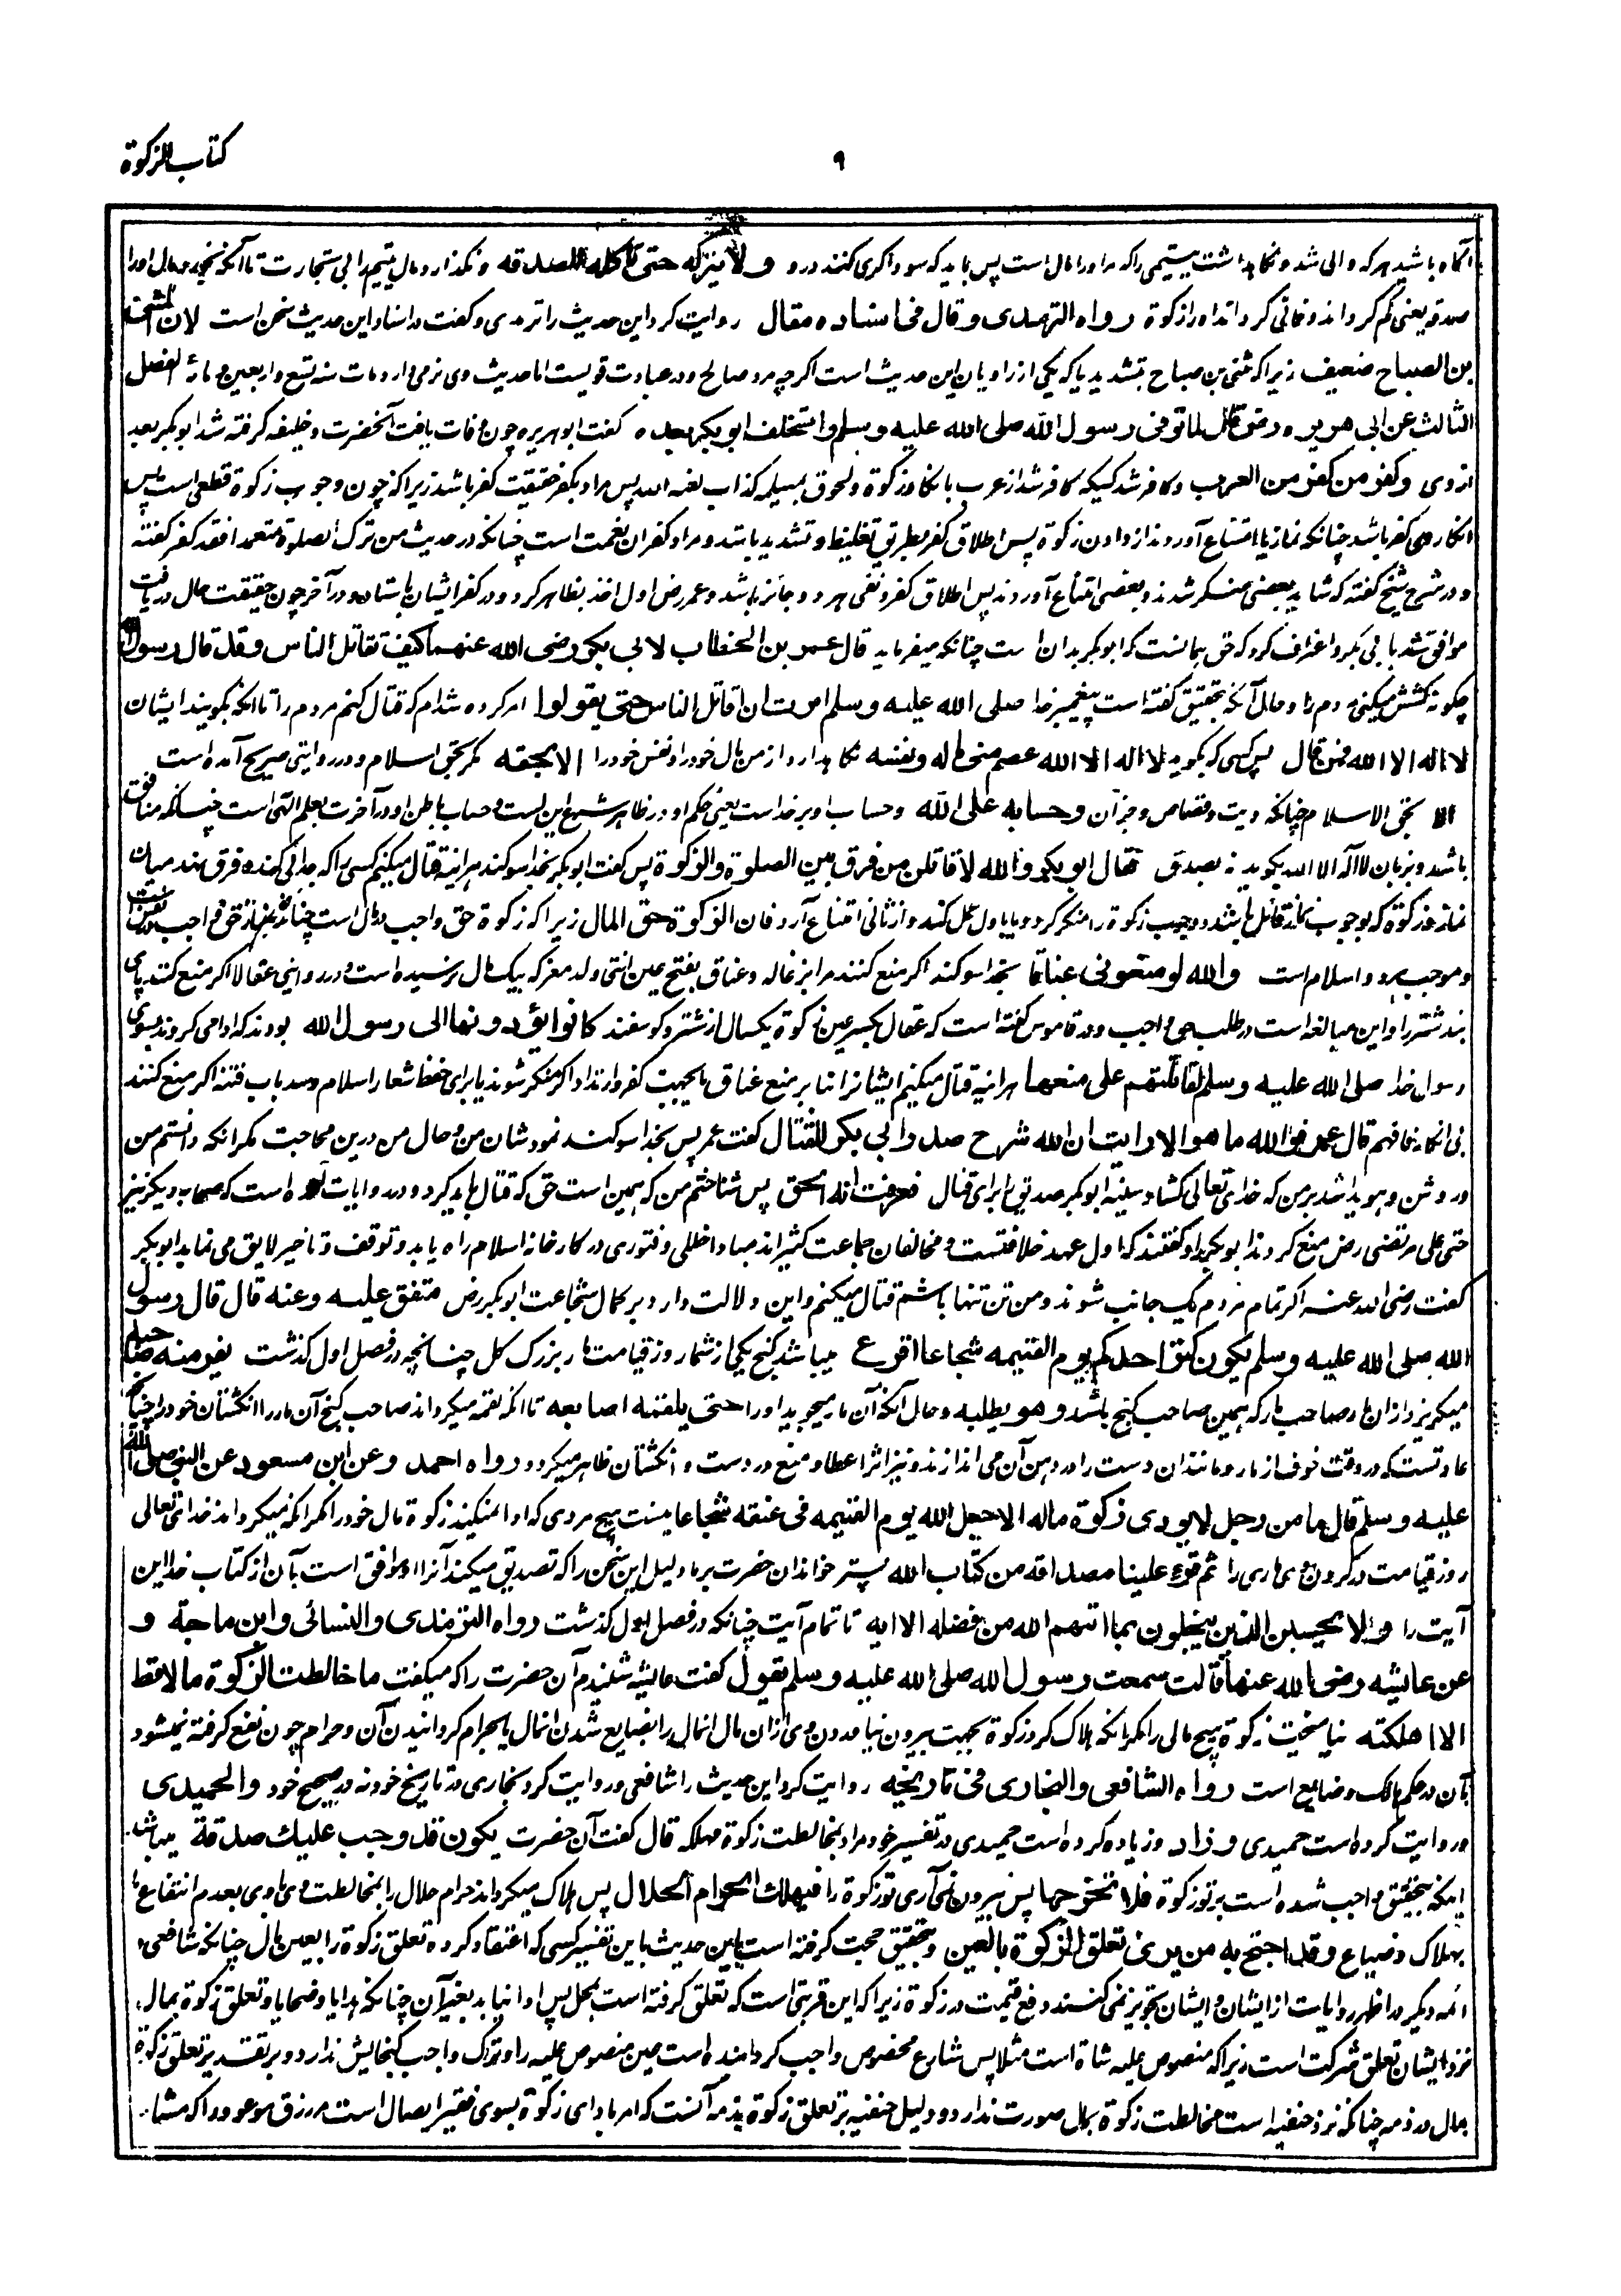 کتاب الزکوة
۹
آگاه باشید هر که والی شد و نگاهداشت یتیمی را که مر او را مال است پس باید که سوداگری کند درو ولا یترکه حتی تاکله الصدقه و نگذارد مال یتیم را بی تجارت تا آنکه بخورد مال او را
صدقه یعنی کم گرداند و فانی گرداند او را زکوة رواه الترمذی وقال فی اسناده مقال روایت کرد این حدیث را ترمذی و گفت در اسناد این حدیث سخن است لان المثنی
بن الصباح ضعیف زیرا که مثنی بن صباح بتشدید با که یکی از راویان این حدیث است اگرچه مرد صالح و در عبادت قویست اما حدیث وی نرمی دارد مات سنه تسع و اربعین و مائة الفصل
الثالث عن ابی هریره رض قال لما توفی رسول الله صلی الله علیه وسلم واستخلف ابوبکر بعده گفت ابو هریره چون وفات یافت آنحضرت و خلیفه گرفته شد ابوبکر بعد
از وی وکفر من کفر من العرب و کافر شد کسیکه کافر شد از عرب بانکار زکوة و لحوق بمسیلمه کذاب لعنه الله پس مراد بکفر حقیقت کفر باشد زیرا که چون وجوب زکوة قطعی است پس
انکار وی کفر باشد چنانکه نماز یا امتناع آوردند از دادن زکوة پس اطلاق کفر بطریق تغلیظ و تشدید باشد و مراد کفران نعمت است چنانکه در حدیث من ترک الصلوة متعمدا فقد کفر گفته
و در شرح شیخ گفته که شاید بعضی منکر شدند و بعضی امتناع آوردند پس اطلاق کفر و نفی هر دو جائز باشد و عمر رض اول اخذ بظاهر کرد و در کفر ایشان بایستاد و در آخر چون حقیقت حال دریافت
موافق شد با ابی بکر و اعتراف کرد که حق همانست که ابوبکر بدان است چنانکه میفرماید قال عمر بن الخطاب لابی بکر رضی الله عنهما کیف تقاتل الناس وقد قال رسول الله
چگونه کشش میکنی مردم را و حال آنکه بتحقیق گفته است پیغمبر خدا صلی الله علیه وسلم امرت ان اقاتل الناس حتی یقولوا امر کرده شدام که قتال کنم مردم را تا آنکه بگویند ایشان
لا اله الا الله فمن قال پس کسی که بگوید لا اله الا الله عصم منی ماله ونفسه نگاه بدارد از من مال خود را و نفس خود را الا بحقه مگر بحق اسلام و در روایتی صریح آمده است
الا بحق الاسلام چنانکه دیت و قصاص و جز آن وحسابه علی الله و حساب او بر خدا است یعنی حکم او در ظاهر شرع این است و حساب باطن او در آخرت بعلم الٓهی است چنانکه منافق
باشد و بزبان لا اله الا الله بگوید نه بصدق فقال ابو بکر والله لاقاتلن من فرق بین الصلوة والزکوة پس گفت ابوبکر بخدا سوگند هر آینه قتال میکنم کسی را که جدائی کند و فرق نهد میان
نماز و زکوة که بوجوب نماز قائل باشد و وجوب زکوة را منکر گردد یا باول عمل کند و از ثانی امتناع آرد فان الزکوة حق المال زیرا که زکوة حق واجب در مال است چنانکه نماز حق واجب در نفس است
و موجب هر دو اسلام است والله لو منعونی عناقا بخدا سوگند اگر منع کنند مرا بزغاله و عناق بفتح عین انثی ولد معز که بیک سال نرسیده است و در روایتی عقالا اگر منع کنند پای
بند شتر را و این مبالغه است در طلب حق واجب و در قاموس گفته است که عقال بکسر عین زکوة یکسال از شتر و گوسفند کانوا یؤدونها الی رسول الله بودند که ادا می کردند بسوی
رسول خدا صلی الله علیه وسلم لقاتلتهم علی منعها هر آینه قتال میکنم ایشان را بنا بر منع عناق یا بجهت کفر و ارتداد اگر منکر شوند یا برای حفظ شعار اسلام و سد باب فتنه اگر منع کنند
بی انکار فافهم قال عمر فوالله ما هو الا رایت ان الله شرح صدر ابی بکر للقتال گفت عمر پس بخدا سوگند نبود شان من و حال من درین محاجت مگر آنکه دانستم من
و روشن و هویدا شد بر من که خدای تعالی گشاد سینه ابوبکر صدیق را برای قتال فعرفت انه الحق پس شناختم من که همین است حق که قتال باید کرد و در روایات آمده است که صحابه دیگر نیز
حتی علی مرتضی رض منع کردند ابوبکر را و گفتند که اول عهد خلافتست و مخالفان جماعت کثیر اند مبادا خللی و فتوری در کارخانه اسلام راه یابد و توقف و تاخیر لایق می نماید ابوبکر
گفت رضی الله عنه اگر تمام مردم یک جانب شوند و من تن تنها باشم قتال میکنم و این دلالت دارد بر کمال شجاعت ابوبکر رض متفق علیه وعنه قال قال رسول
الله صلی الله علیه وسلم یکون کنز احدکم یوم القیمه شجاعا اقرع میباشد گنج یکی از شما روز قیامت مار بزرگ کل چنانچه در فصل اول گذشت یفر منه صاحبه
میگریزد ازان مار صاحب مار که همین صاحب گنج باشد وهو یطلبه و حال آنکه آن مار میجوید او را حتی یلقمه اصابعه تا آنکه لقمه میگرداند صاحب گنج آن مار را انگشتان خود را چنانکه
عادتست که در وقت خوف از مار و مانند آن دست را در دهن آن می اندازند و نیز اثر اعطا و منع در دست و انگشتان ظاهر میگردد رواه احمد وعن ابن مسعود عن النبی صلی الله
علیه وسلم قال ما من رجل لا یودی زکوة ماله الا جعل الله یوم القیمه فی عنقه شجاعا نیست هیچ مردی که ادا نمیکند زکوة مال خود را مگر آنکه میگرداند خدای تعالی
روز قیامت در گردن وی ماری را ثم قرء علینا مصداقه من کتاب الله پستر خواند آن حضرت بر ما دلیل این سخن را که تصدیق میکند آنرا و موافق است بآن از کتاب خدا این
آیت را ولا یحسبن الذین یبخلون بما اتهم الله من فضله الایه تا تمام آیت چنانکه در فصل اول گذشت رواه الترمذی والنسائی وابن ماجة و
عن عایشه رضی الله عنها قالت سمعت رسول الله صلی الله علیه وسلم یقول گفت عایشه شنیدم آن حضرت را که میگفت ما خالطت الزکوة مالا قط
الا اهلکته نیامیخت زکوة هیچ مالی را مگر آنکه هلاک کرد زکوة بجهت بیرون نیامدن وی ازان مال آنمال را بضایع شدن آنمال یا بحرام گردانیدن آن و حرام چون نفع گرفته نمیشود
بآن در حکم هالک و ضایع است رواه الشافعی والبخاری فی تاریخه روایت کرد این حدیث را شافعی و روایت کرد بخاری در تاریخ خود نه در صحیح خود والحمیدی
و روایت کرده است حمیدی وزاد و زیاده کرده است حمیدی در تفسیر خود مراد بمخالطت زکوة مهلکه قال گفت آن حضرت یکون قد وجب علیک صدقة میباشد
اینکه بتحقیق واجب شده است بر تو زکوة فلا تخرجها پس بیرون نمی آری تو زکوة را فیهلک الحرام الحلال پس هلاک میگرداند حرام حلال را بمخالطت وی باوی بعدم انتفاع یا
بهلاک و ضیاع وقد احتج به من یری تعلق الزکوة بالعین و بتحقیق حجت گرفته است باین حدیث باین تفسیر کسی که اعتقاد کرده تعلق زکوة را بعین مال چنانکه شافعی و
ائمه دیگر در اظهر روایات از ایشان و ایشان تجویز نمی کنند دفع قیمت در زکوة زیرا که این قربتی است که تعلق گرفته است بمحل پس ادا نیابد بغیر آن چنانکه هدایا و ضحایا و تعلق زکوة بمال
نزد ایشان تعلق شرکت است زیرا که منصوص علیه شاة است مثلا پس شارع مخصوص واجب گردانیده است عین منصوص علیه را و ترک واجب گنجایش ندارد و بر تقدیر تعلق زکوة
بمال در ذمه چنانکه نزد حنفیه است مخالطت زکوة بمال صورت ندارد و دلیل حنفیه بر تعلق زکوة بذمه آنست که امر بادای زکوة بسوی فقیر ایصال است مر رزق موعود را که